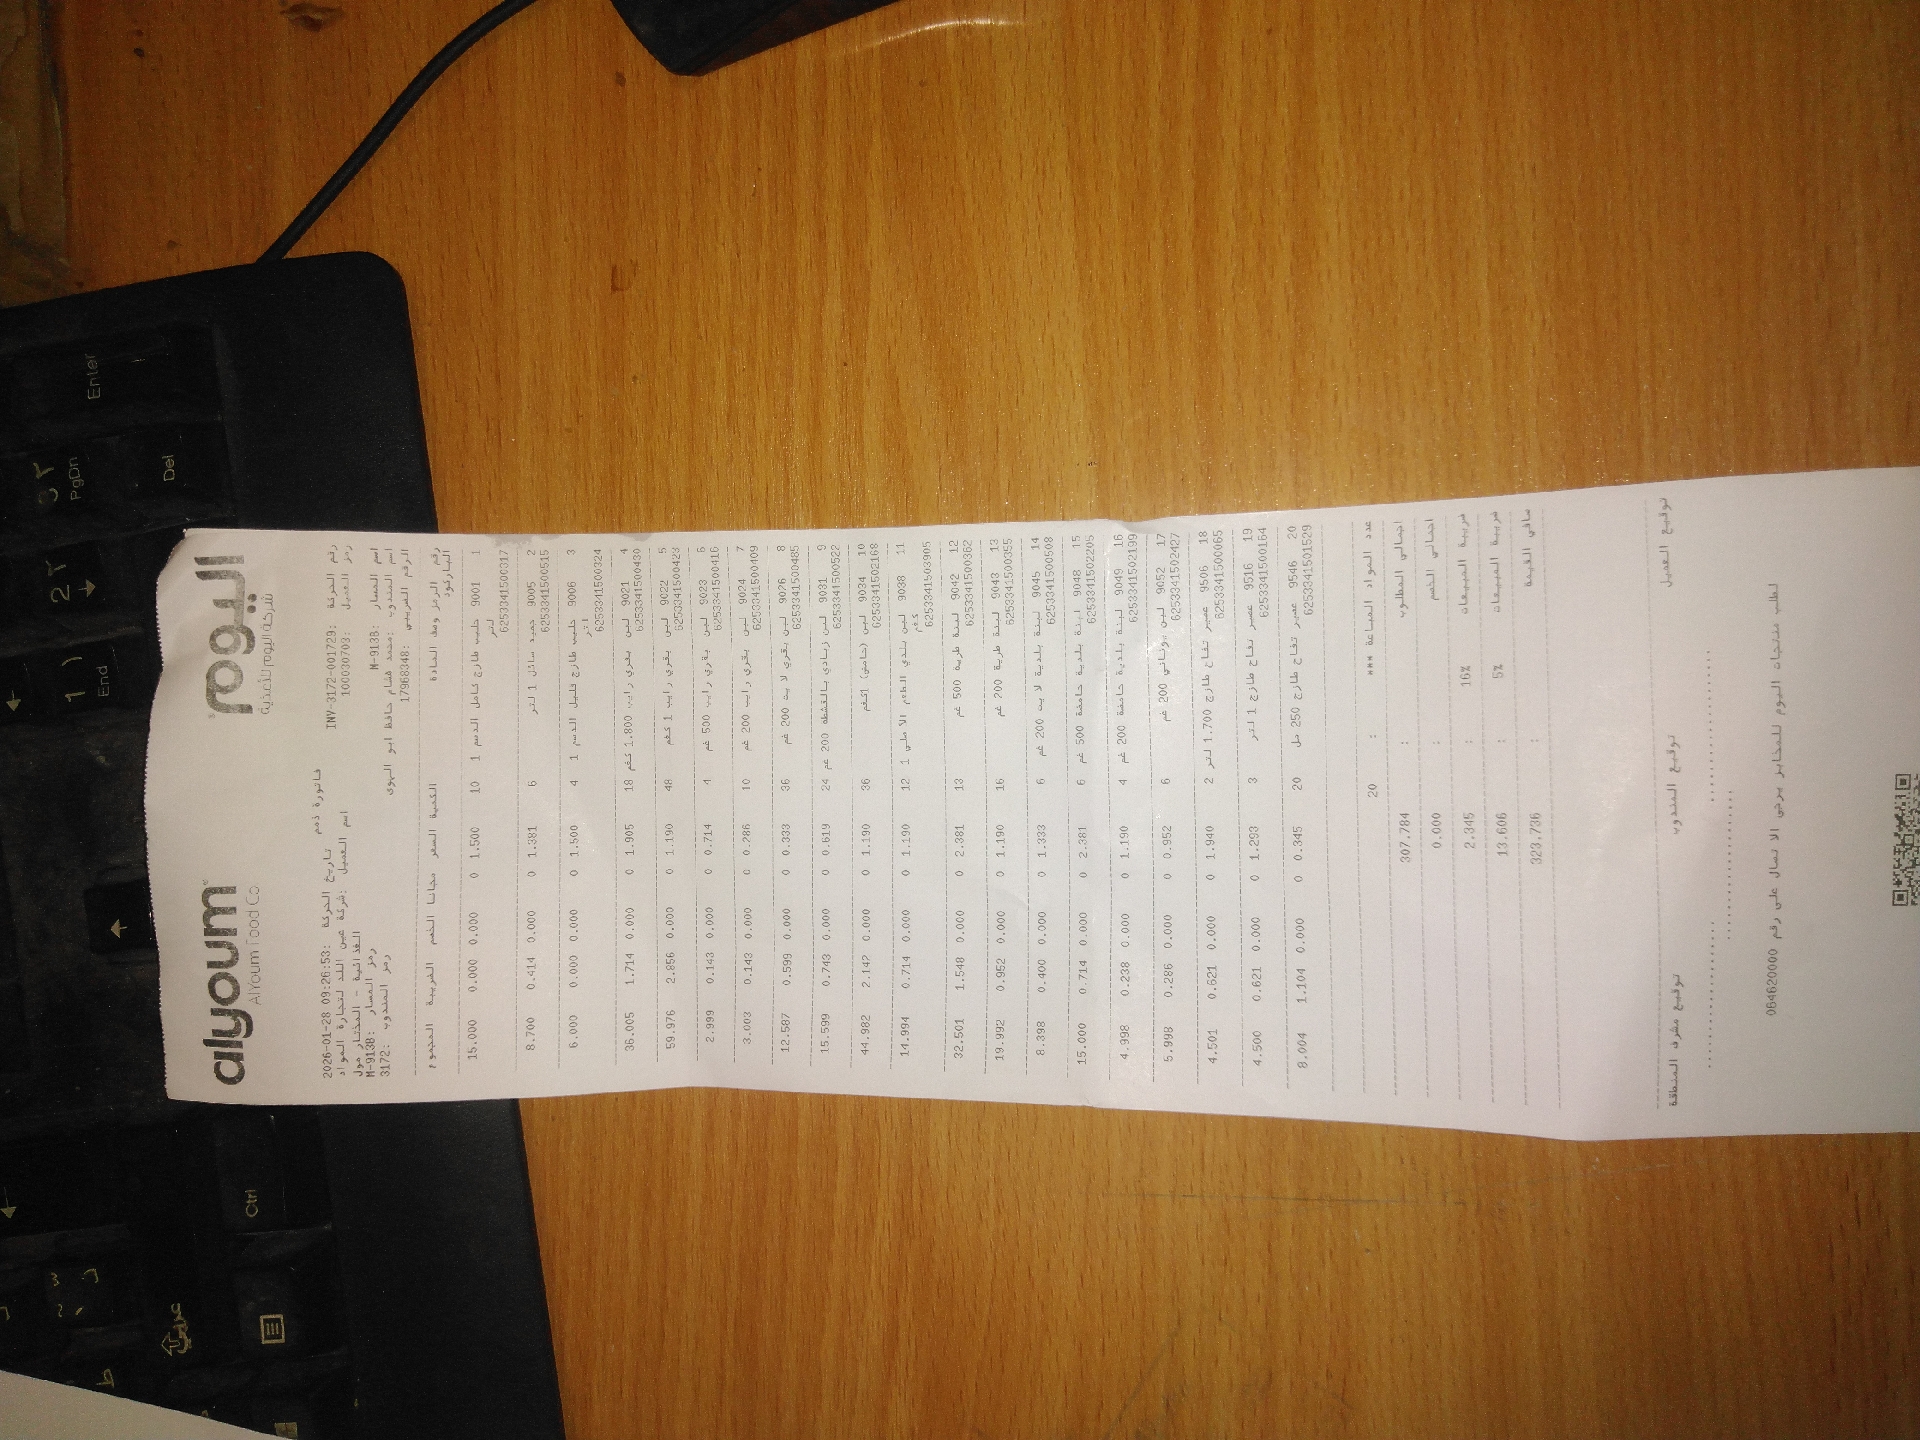 alyoum اليوم
AlYoum Food Co شركة اليوم للأغذية
فاتورة ذمم
رقم الحركة: INV-3172-001729 تاريخ الحركة: 2026-01-28 09:26:53
رمز العميل: 100030703 اسم العميل: شركة عين اللد لتجارة المواد
الغذائية - المختار مول
اسم المسار: M-913B رمز المسار: M-913B
اسم المندوب: محمد هشام حافظ ابو الهوى رمز المندوب: 3172
الرقم الضريبي: 17968348
رقم الرمز وصف المادة الكمية السعر مجانا الخصم الضريبة المجموع
الباركود
1 9001 حليب طازج كامل الدسم 1 10 1.500 0 0.000 0.000 15.000
لتر
6253341500317
2 9005 جميد سائل 1 لتر 6 1.381 0 0.000 0.414 8.700
6253341500515
3 9006 حليب طازج قليل الدسم 1 4 1.500 0 0.000 0.000 6.000
لتر
6253341500324
4 9021 لبن بقري رايب 1.800 كغم 18 1.905 0 0.000 1.714 36.005
6253341500430
5 9022 لبن بقري رايب 1 كغم 48 1.190 0 0.000 2.856 59.976
6253341500423
6 9023 لبن بقري رايب 500 غم 4 0.714 0 0.000 0.143 2.999
6253341500416
7 9024 لبن بقري رايب 200 غم 10 0.286 0 0.000 0.143 3.003
6253341500409
8 9026 لبن بقري لا يت 200 غم 36 0.333 0 0.000 0.599 12.587
6253341500485
9 9031 لبن زبادي بالقشطه 200 غم 24 0.619 0 0.000 0.743 15.599
6253341500522
10 9034 لبن (حامض) 1كغم 36 1.190 0 0.000 2.142 44.982
6253341502168
11 9038 لبن بلدي الطعم الاصلي 1 12 1.190 0 0.000 0.714 14.994
كغم
6253341503905
12 9042 لبنة طرية 500 غم 13 2.381 0 0.000 1.548 32.501
6253341500362
13 9043 لبنة طرية 200 غم 16 1.190 0 0.000 0.952 19.992
6253341500355
14 9045 لبنة بلدية لا يت 200 غم 6 1.333 0 0.000 0.400 8.398
6253341500508
15 9048 لبنة بلدية حامضة 500 غم 6 2.381 0 0.000 0.714 15.000
6253341502205
16 9049 لبنة بلدية حامضة 200 غم 4 1.190 0 0.000 0.238 4.998
6253341502199
17 9052 لبن يوناني 200 غم 6 0.952 0 0.000 0.286 5.998
6253341502427
18 9506 عصير تفاح طازج 1.700 لتر 2 1.940 0 0.000 0.621 4.501
6253341500065
19 9516 عصير تفاح طازج 1 لتر 3 1.293 0 0.000 0.621 4.500
6253341500164
20 9546 عصير تفاح طازج 250 مل 20 0.345 0 0.000 1.104 8.004
6253341501529
عدد المواد المباعة *** : 20
اجمالي المطلوب : 307.784
اجمالي الخصم : 0.000
ضريبة المبيعات 16% : 2.345
ضريبة المبيعات 5% : 13.606
صافي القيمة : 323.736
توقيع العميل توقيع المندوب توقيع مشرف المنطقة
لطلب منتجات اليوم للمخابز يرجى الاتصال على رقم 064620000
Enter
PgDn
Del
End
Ctrl
عربي